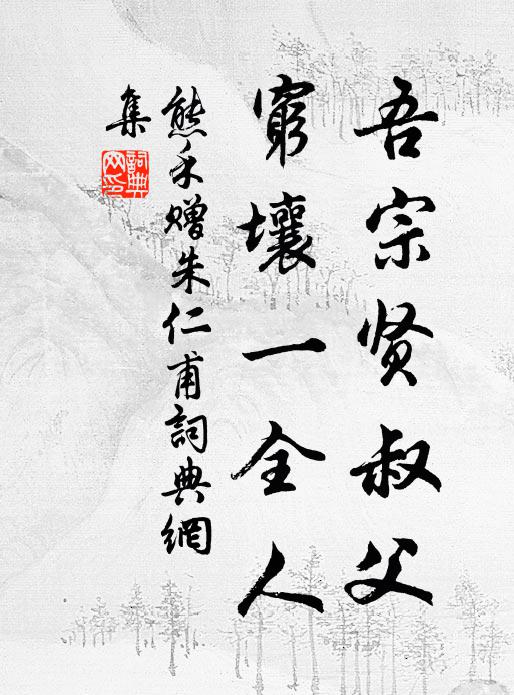 吾宗贤叔父
窮壤一全人
熊禾赠朱仁甫詞典網
集
詞典网印